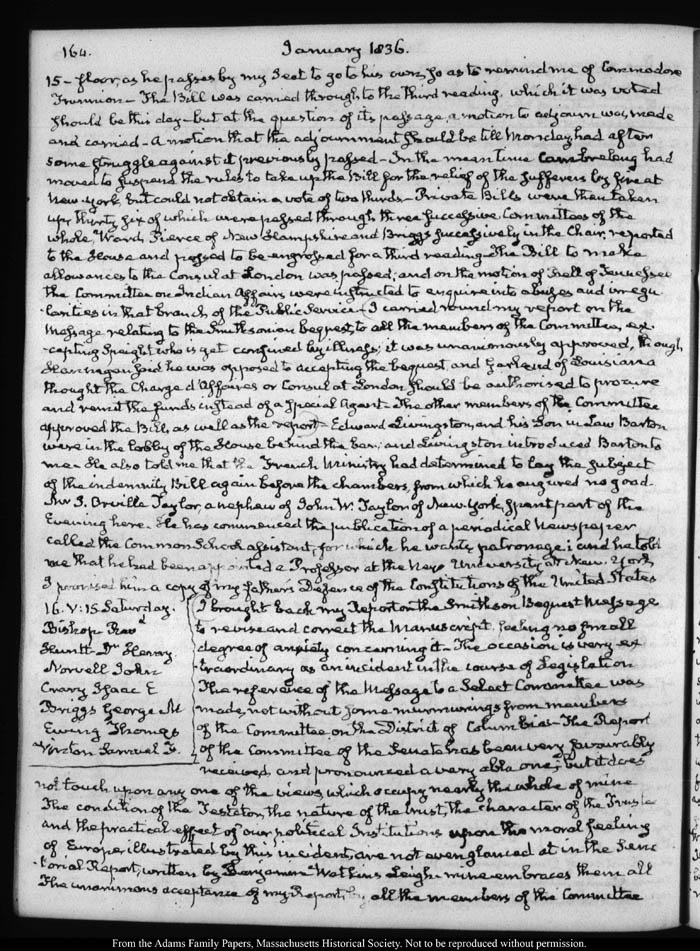 164. January 1836.
15 - floor, as he passes by my Seat to go to his own, so as to remind me of Commodore
Trunnion - The Bill was carried through to the third reading, which it was voted
should be this day - but at the question of its passage, a motion to adjourn was made
and carried - A motion that the adjournment should be till Monday, had after
some struggle against it previously passed - In the mean time Cambreleng had
moved to suspend the rules to take up the Bill for the relief of the sufferers by fire at
New-York, but could not obtain a vote of two thirds - Private Bills were then taken
up; thirty six of which were passed through three successive Committees of the
whole, Ward, Pierce of New Hampshire and Briggs successively in the Chair, reported
to the House and passed to be engrossed for a third reading - The Bill to make
allowances to the Consul at London was passed; and on the motion of Bell of Tennessee
the Committee on Indian Affairs were instructed to enquire into abuses and irregu
larities in that branch of the Public Service - I carried round my report on the
Message relating to the Smithsonian bequest to all the members of the Committee, ex-
-cepting Speight who is yet confined by illness; it was unanimously approved, though
Hannegan said he was opposed to accepting the bequest, and Garland of Louisiana
thought the Charge d'Affaires or Consul at London should be authorised to procure
and remit the funds instead of a Special Agent - The other members of the Committee
approved the Bill, as well as the report - Edward Livingston, and his Son in Law Barton
were in the lobby of the House behind the bar; and Livingston introduced Barton to
me - He also told me that the French Ministry had determined to lay the subject
of the indemnity Bill again before the chambers, from which he augured no good -
Mr J. Orville Taylor, a nephew of John W. Taylor of New-York, spent part of the
Evening here - He has commenced the publication of a periodical Newspaper
called the Common School assistant, for which he wants patronage; and he told
me that he had been appointed a Professor at the New University at New-York
I promised him a copy of my father's Defence of the Constitutions of the United States
16. V: 15. Saturday.
Bishop Revd
Hewitt - Dr Henry
Norvell John
Crary Isaac E
Briggs George N
Ewing Thomas
Vinton Samuel F.
I brought back my Report on the Smithson Bequest Message
to revise and correct the Manuscript, feeling no small
degree of anxiety concerning it - The occasion is very ex
-traordinary as an incident in the course of Legislation
The reference of the Message to a Select Committee was
made, not without some murmurings from members
of the Committee on the District of Columbia - The Report
of the Committee of the Senate has been very favourably
received, and pronounced a very able one; but it does
not touch upon any one of the views which occupy nearly the whole of mine
The condition of the Testator, the nature of the trust, the character of the Trustee
and the practical effect of our political Institutions upon the moral feeling
of Europe, illustrated by this incident, are not even glanced at in the Sena
-torial Report, written by Benjamin Watkins Leigh - mine embraces them all
The unanimous acceptance of my Report, by all the members of the Committee
From the Adams Family Papers, Massachusetts Historical Society. Not to be reproduced without permission.